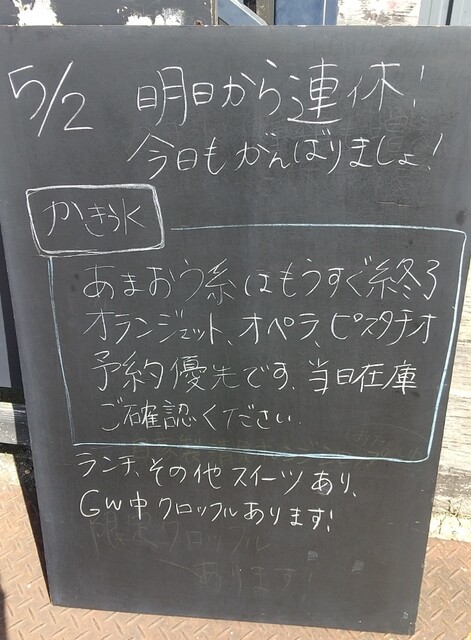 5/2 明日から連休!
今日もがんばりましょ!
かき氷
あまおう系はもうすぐ終了
オランジェット、オペラ、ピスタチオ
予約優先です。当日在庫
ご確認ください。
ランチ、その他スイーツあり、
GW中クロッフルあります!
限定クロッフル
あります!